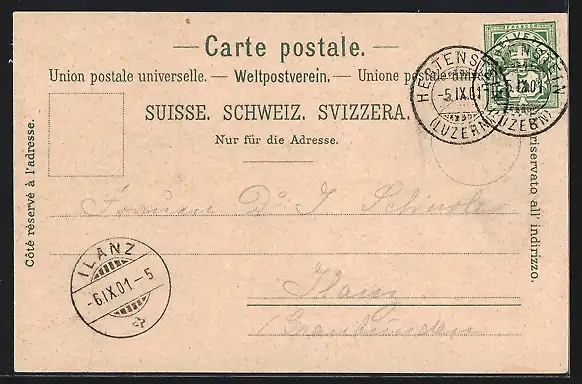 — Carte postale. —
Union postale universelle. — Weltpostverein. — Unione postale
SUISSE. SCHWEIZ. SVIZZERA.
Nur für die Adresse.
Côté réservé à l'adresse.
riservato all' indirizzo.
HERTENSTEIN
-5.IX.01
(LUZERN)
HELVETIA
5
HERTENSTEIN
-5.IX.01
(LUZERN)
Frauen Dr J.
Ilanz
(Graubünden)
ILANZ
-6.IX.01-5